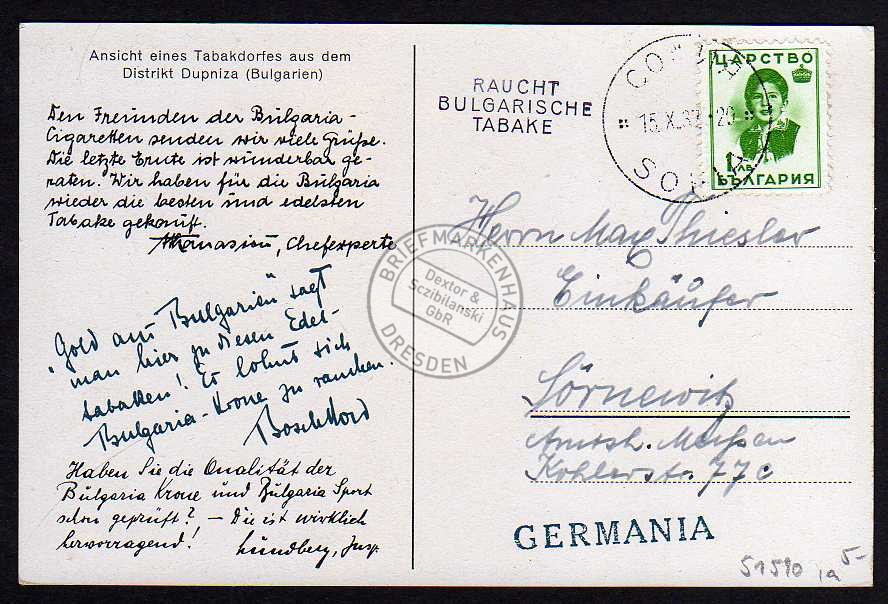 Ansicht eines Tabakdorfes aus dem
Distrikt Dupniza (Bulgarien)
Den Freunden der Bulgaria-
Cigaretten senden wir viele Grüße.
Die letzte Ernte ist wunderbar ge-
raten. Wir haben für die Bulgaria
wieder die besten und edelsten
Tabake gekauft.
Athanasiou, Chefexperte
"Gold aus Bulgarien" sagt
man hier zu diesen Edel-
tabakken! Es lohnt sich
Bulgaria-Krone zu rauchen.
Haben Sie die Qualität der
Bulgaria Krone und Bulgaria Sport
schon geprüft? – Die ist wirklich
hervorragend! Lundberg, Insp.
RAUCHT
BULGARISCHE
TABAKE
СОФИЯ
15.X.37 20
SOFIA
ЦАРСТВО
1 ЛВ.
БЪЛГАРИЯ
Herrn Max Thiesler
Einkäufer
Sörnewitz
Amtsh. Meißen
Köhlerstr. 77c
GERMANIA
51590 1a 5-
BRIEFMARKENHAUS
Dextor &
Sczibilanski
GbR
DRESDEN